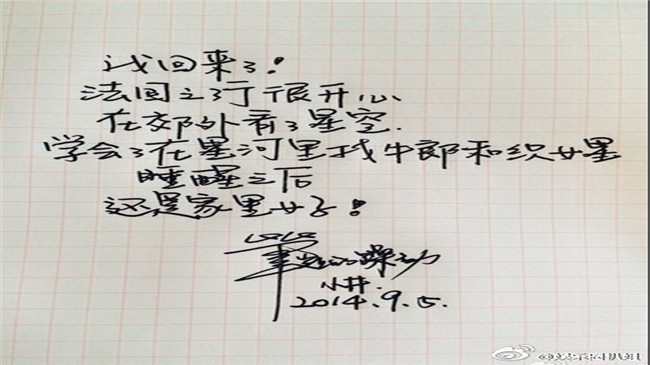 我回来了！
法国之行很开心
在郊外看了星空.
学会了在星河里找牛郎和织女星
睡醒之后
还是家里好！
躁动
小井.
2014.9.5.